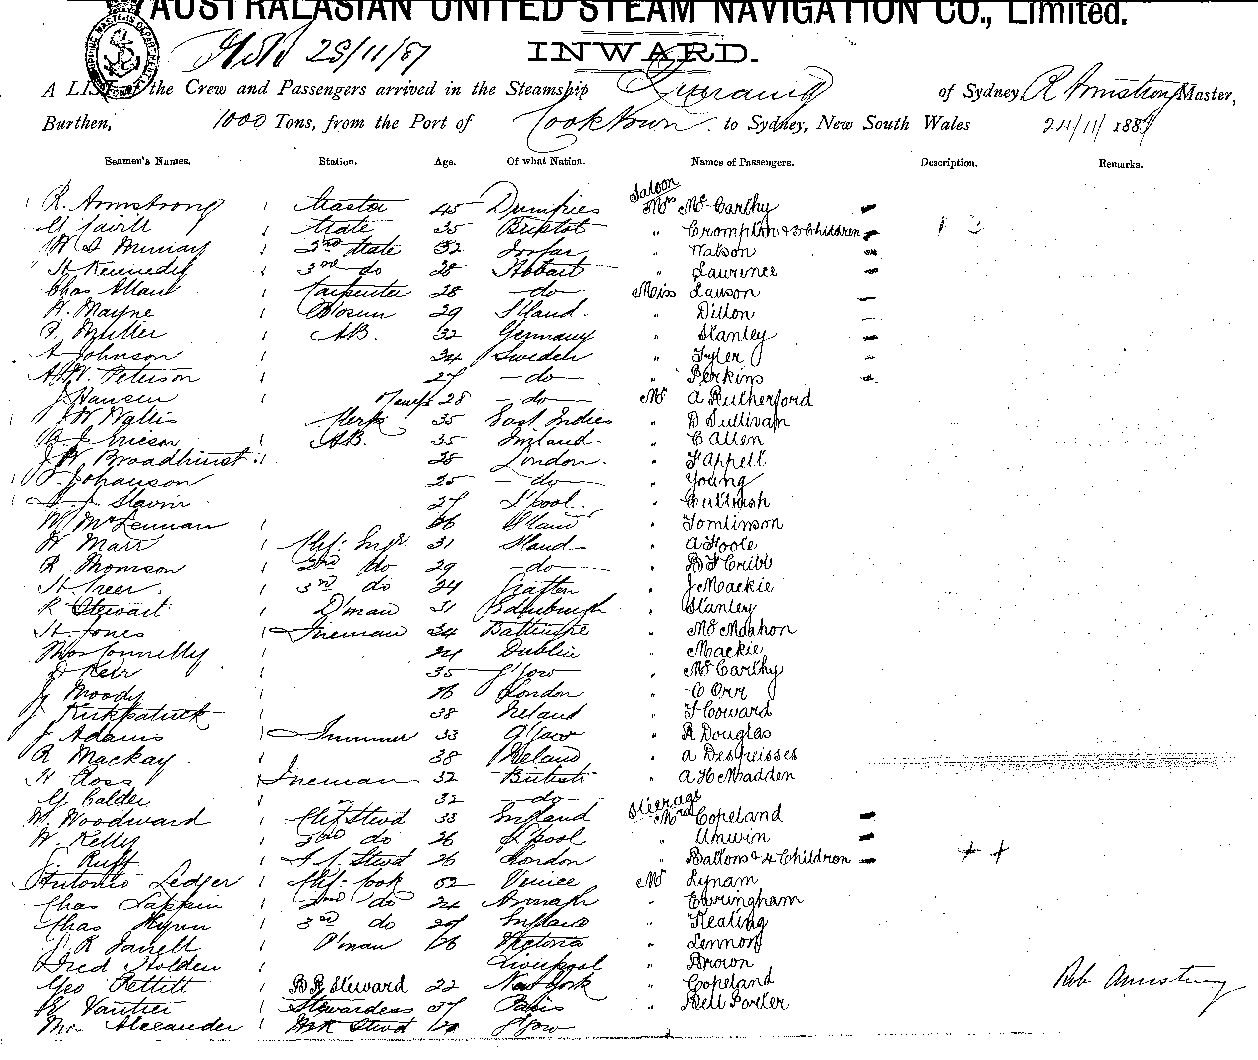 AUSTRALASIAN UNITED STEAM NAVIGATION CO., Limited.
28/11/87 INWARD.
A LIST of the Crew and Passengers arrived in the Steamship of Sydney, R Armstrong Master,
Burthen, 1000 Tons, from the Port of Cooktown to Sydney, New South Wales 24/11/1887
Seamen's Names. Station. Age. Of what Nation. Names of Passengers. Description. Remarks.
Saloon
R. Armstrong 1 Master 45 Dumfries Mrs McCarthy
1 Mate 35 Bristol " Crompton & 3 Children
W D Murray 1 2nd Mate 32 " Watson
H Kennedy 1 3rd do 28 Hobart " Laurence
Chas Allan 1 Carpenter 28 do Miss Lawson
W. Mayne 1 Bosun 29 " Dillon
F. Muller 1 A.B. 32 Germany " Stanley
A Johnson 1 34 Sweden " Tyler
Peterson 1 27 do " Perkins
J Hansen 1 28 do Mr A Rutherford
W Wallis 1 Clerk 35 East Indies " D Sullivan
1 A.B. 35 " C Allen
J W Broadhurst 1 28 London " F Appell
Johanson 25 do " Young
J Slavin 27 L'pool "
W McLennan 1 " Tomlinson
W Marr 1 Chf. Engr 31 " A Foote
R Thomson 1 2nd do 29 do " B F Cribb
H Greer 1 3rd do 24 Grafton " J Mackie
R Stewart 1 D'man 31 Edinburgh " Stanley
H. Jones 1 Fireman 34 " McMahon
Thos Connelly 1 24 Dublin " Mackie
Keir 1 35 G'gow " McCarthy
J Moody 1 26 London " C Orr
J Kirkpatrick 1 38 Ireland " F Coward
J Adams 1 Trimmer 33 G'gow " R Douglas
R Mackay 1 38 Ireland " A Desgreisses
H Ross 1 Fireman 32 British " A H Madden
G Calder 1 32 do
Steerage
W. Woodward 1 Chf Stwd 33 England Mrs Copeland
W. Kelly 1 2nd do 26 L'pool " Unwin
J. Ruff 1 Stwd 26 London " Battons & 4 Children
Antonio Ledger 1 Chf. Cook 52 Venice Mr Lynam
Chas Lappin 1 2nd do 24 Armagh " Everingham
Chas Flynn 1 3rd do 27 England " Keating
J. R Jarrett 1 P'man 26 Victoria " Lennon
Fred Holden 1 Liverpool " Brown
Geo Pettitt 1 B R Steward 22 New York " Copeland
Vautier 1 Stewardess 37 Paris " Bell Porter
Mr. Alexander 1 Stwd G'gow
Rob Armstrong